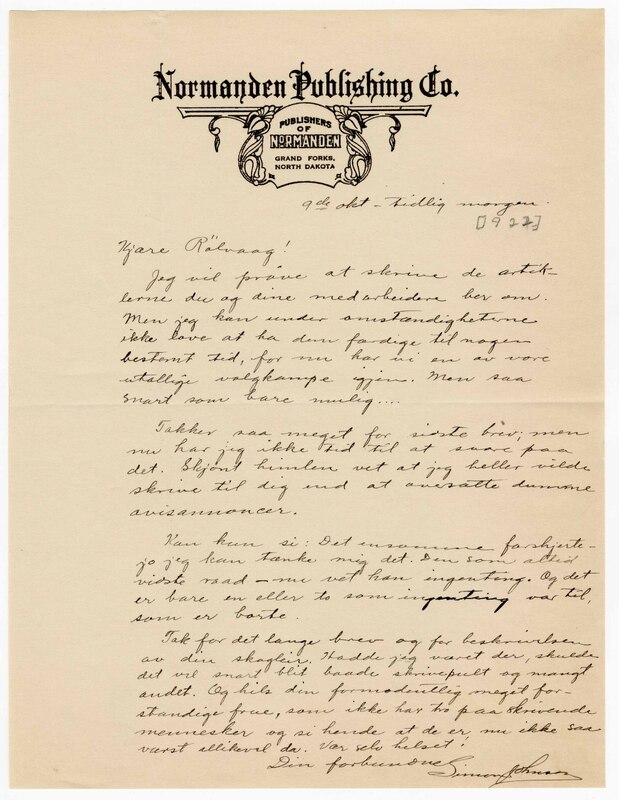 Normanden Publishing Co.
PUBLISHERS
OF
NORMANDEN
GRAND FORKS,
NORTH DAKOTA
9de okt – tidlig morgen.
[1922]
Kjære Rölvaag!
Jeg vil pröve at skrive de artik-
lerne du og dine medarbeidere ber om.
Men jeg kan under omstændigheterne
ikke love at ha dem færdige til nogen
bestemt tid, for nu har vi en av vore
utallige valgkampe igjen. Men saa
snart som bare mulig....
Takker saa meget for sidste brev; men
nu har jeg ikke tid til at svare paa
det. Skjönt himlen vet at jeg heller vilde
skrive til dig end at oversætte dumme
avisannoncer.
Kan kun si: Det ensomme farshjerte –
jo jeg kan tænke mig det. Den som altid
vidste raad – nu vet han ingenting. Og det
er bare en eller to som ingenting var til,
som er borte.
Tak for det lange brev og for beskrivelsen
av din skogleir. Hadde jeg været der, skulde
det vel snart blit baade skrivepult og mangt
andet. Og hils din formodentlig meget for-
standige frue, som ikke har tro paa skrivende
mennesker og si hende at de er nu ikke saa
værst allikevel da. Vær selv hilset!
Din forbundne
Simon Johnson